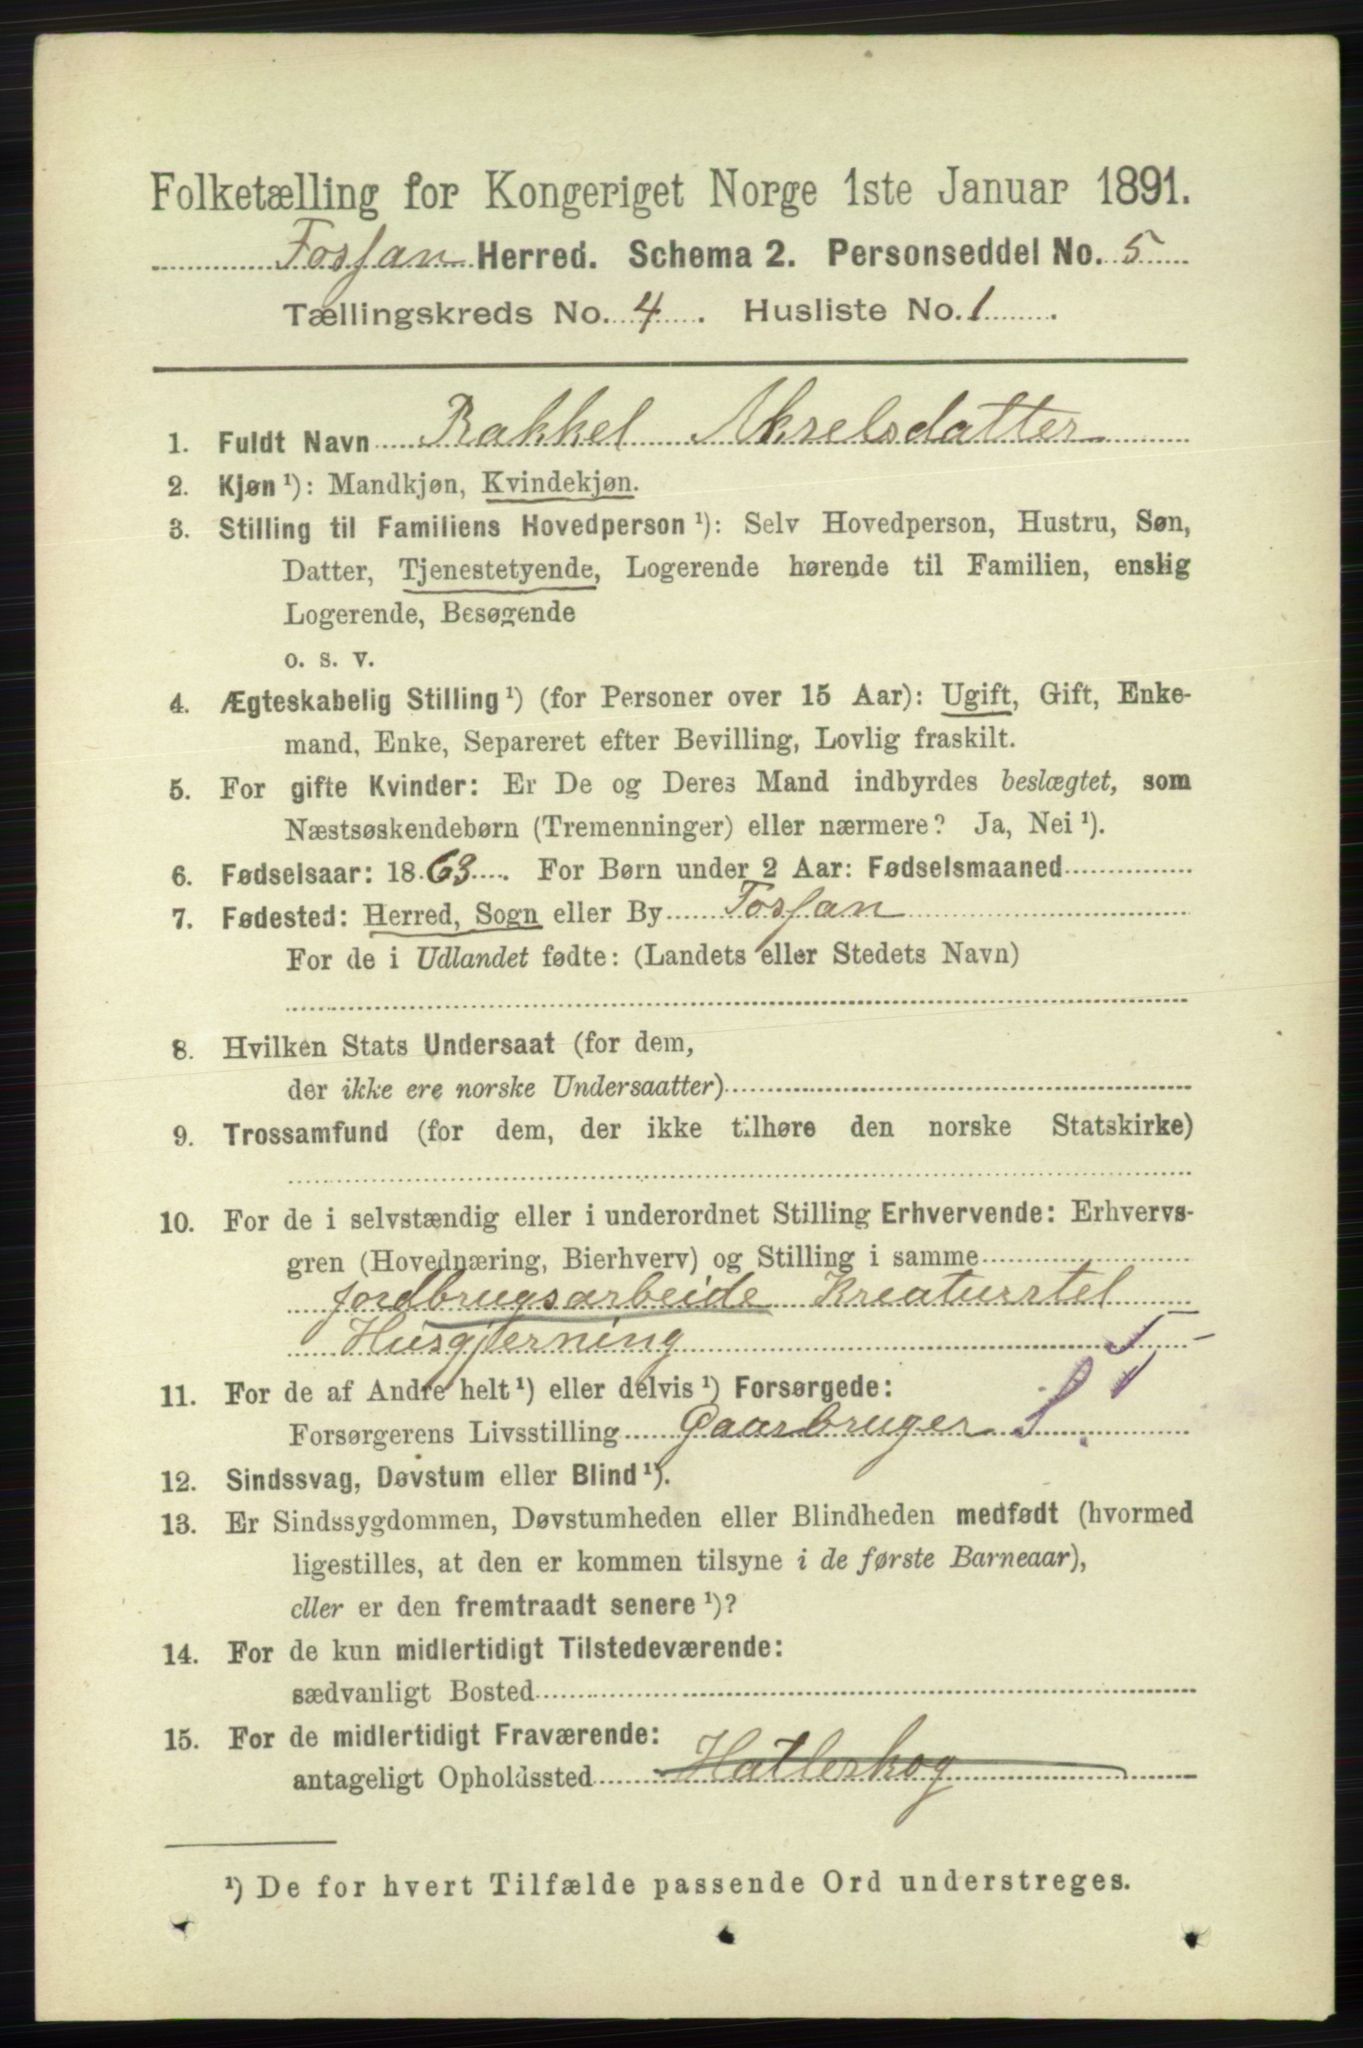 Folketælling for Kongeriget Norge 1ste Januar 1891.
Fossan Herred. Schema 2. Personseddel No. 5
Tællingskreds No. 4. Husliste No. 1.
1. Fuldt Navn Rakkel Akselsdatter
2. Kjøn ¹): Mandkjøn, Kvindekjøn.
3. Stilling til Familiens Hovedperson ¹): Selv Hovedperson, Hustru, Søn,
Datter, Tjenestetyende, Logerende hørende til Familien, enslig
Logerende, Besøgende
o. s. v.
4. Ægteskabelig Stilling ¹) (for Personer over 15 Aar): Ugift, Gift, Enke-
mand, Enke, Separeret efter Bevilling, Lovlig fraskilt.
5. For gifte Kvinder: Er De og Deres Mand indbyrdes beslægtet, som
Næstsøskendebørn (Tremenninger) eller nærmere? Ja, Nei ¹).
6. Fødselsaar: 1863. For Børn under 2 Aar: Fødselsmaaned
7. Fødested: Herred, Sogn eller By Fossan
For de i Udlandet fødte: (Landets eller Stedets Navn)
8. Hvilken Stats Undersaat (for dem,
der ikke ere norske Undersaatter)
9. Trossamfund (for dem, der ikke tilhøre den norske Statskirke)
10. For de i selvstændig eller i underordnet Stilling Erhvervende: Erhvervs-
gren (Hovednæring, Bierhverv) og Stilling i samme
jordbrugsarbeide Kreaturstel
Husgjerning
11. For de af Andre helt ¹) eller delvis ¹) Forsørgede:
Forsørgerens Livsstilling Gaarbruger
12. Sindssvag, Døvstum eller Blind ¹).
13. Er Sindssygdommen, Døvstumheden eller Blindheden medfødt (hvormed
ligestilles, at den er kommen tilsyne i de første Barneaar),
eller er den fremtraadt senere ¹)?
14. For de kun midlertidigt Tilstedeværende:
sædvanligt Bosted
15. For de midlertidigt Fraværende:
antageligt Opholdssted Hatleskog
¹) De for hvert Tilfælde passende Ord understreges.